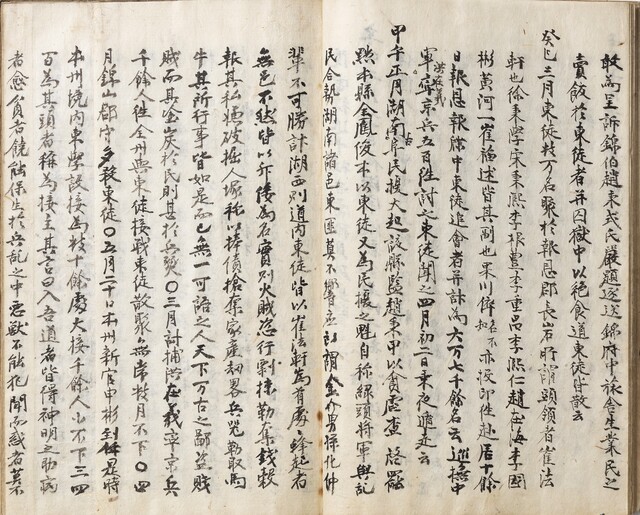 敢為呈訴錦伯趙東式氏嚴題逐送錦府中旅舍生業民之
賣飯於東徒者并囚獄中以絶食道東徒皆散云
癸巳三月東徒数万名聚於報恩郡長岩所謂頭領者崔法
軒也徐秉學宋秉熙李根豊李重昌李熙仁趙在海李國
彬黃河一崔 述皆其副也果川 名不知亦後卽往赴居十餘
日報恩報牒中東徒追會者并計為六万七千餘名云巡撫中
軍洪啓義率京兵五百往討之東徒聞之四月初二日乘夜遁走云
甲午正月湖南古阜民擾大起該縣監趙東甲以貪虐查啓罷
黜本縣全鳳俊本以東徒又為民擾之魁自称綠頭將軍與乱
民合勢湖南諸邑東匪莫不響應所謂金介男孫化仲
輩不可勝計湖西列道內東徒皆以崔法軒為首處々蜂起者
無邑不然皆以斥倭為名實則火賊恣行剽掠勒集錢穀
報其私嫌發掘人塚称以捧債搶奪家産刼畧兵器勒取馬
牛其所行事皆如是而已無一可語之人天下万古之鄙盜賤
賊而其塗炭於民則甚於兵燹○三月討捕洪在義率京兵
千餘人往全州與東徒接戰東徒散聚無常数月不下○四
月錦山郡守多殺東徒○五月二十日本州新官申彬到任是時
本州境內東學設接為数十餘處大接千餘人小不下三四
百為其頭者称為接主其言曰入吾道者皆得神明之助病
者愈貧者饒能保生於兵乱之中惡獸不能犯聞而惑者莫不